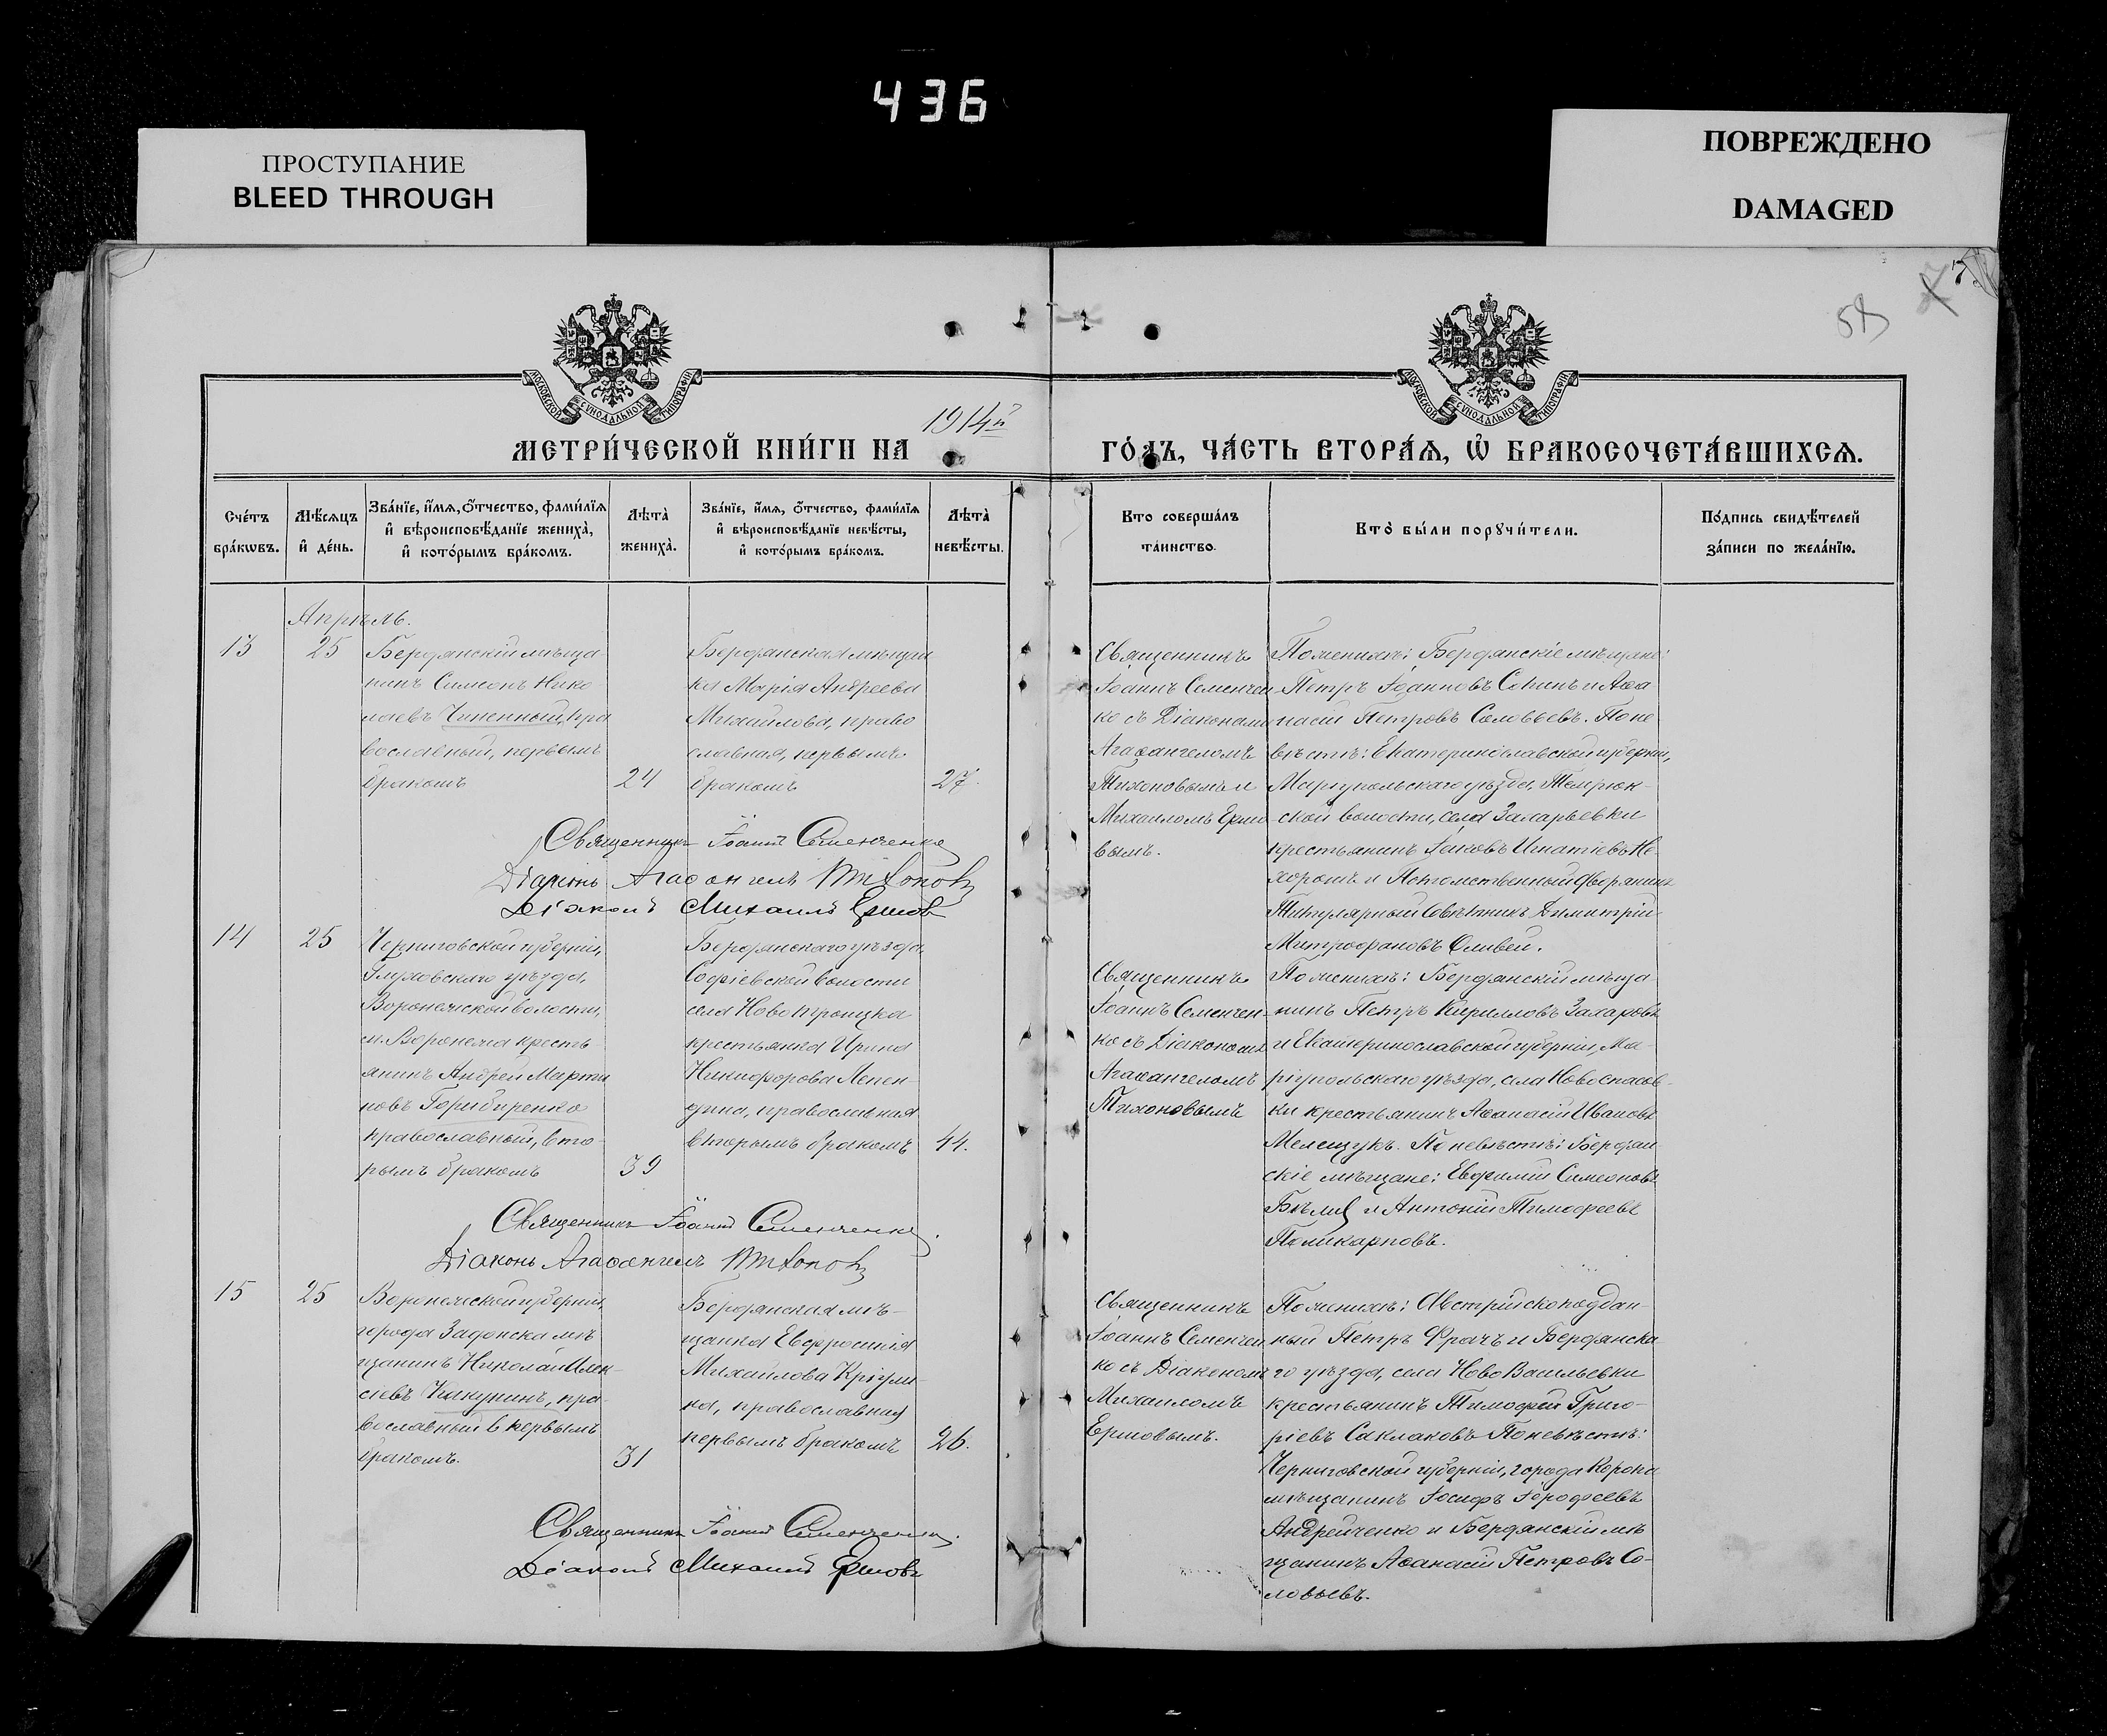 436
ПРОСТУПАНИЕ
BLEED THROUGH
ПОВРЕЖДЕНО
DAMAGED
58
МОСКОВСКОЙ СѴНОДАЛЬНОЙ ТИПОГРАФІИ
МОСКОВСКОЙ СѴНОДАЛЬНОЙ ТИПОГРАФІИ
МЕТРИ́ЧЕСКОЙ КНИ́ГИ НА 1914й ГО́ДЪ, ЧА́СТЬ ВТОРА́Ѧ, Ѡ҆ БРАКОСОЧЕТА́ВШИХСѦ.
Сче́тъ
бра́кѡвъ.
Мѣ́сѧцъ
и҆ де́нь.
Зва́нїе, и҆́мѧ, ѻ҆́тчество, фами́лїѧ
и҆ вѣроисповѣ́данїе жениха̀,
и҆ кото́рымъ бра́комъ.
Лѣта̀
жениха̀.
Зва́нїе, и҆́мѧ, ѻ҆́тчество, фами́лїѧ
и҆ вѣроисповѣ́данїе невѣ́сты,
и҆ кото́рымъ бра́комъ.
Лѣта̀
невѣ́сты.
Кто соверша́лъ
та́инство.
Кто̀ бы́ли порꙋчи́тели.
По́дпись свидѣ́телей
за́писи по жела́нїю.
Апрѣль.
13
25
Бердянскій мѣща-
нинъ Симеонъ Нико
лаевъ Чиненный, пра
вославный, первымъ
бракомъ
24
Бердянская мѣщан
ка Марія Андреева
Михайлова, право
славная, первымъ
бракомъ
27.
Священникъ
Іоаннъ Семенчен
ко съ Діаконами
Агаѳангеломъ
Тихоновымъ и
Михаиломъ Ершо
вымъ.
По женихѣ: Бердянскіе мѣщане:
Петръ Іоанновъ Сопинъ и Аѳа
насій Петровъ Соловьевъ. По не
вѣстѣ: Екатеринославской губерніи,
Маріупольскаго уѣзда, Темрюк-
ской волости, села Захарьевки
крестьянинъ Іаковъ Игнатіевъ Не-
хорошъ и Потомственный дворянинъ
Титулярный Совѣтникъ Димитрій
Митрофановъ Оливей.
Священникъ Іоаннъ Семенченко
Діаконъ Агаѳангелъ Тихоновъ
Діаконъ Михаилъ Ершовъ
14
25
Черниговской губерніи,
Глуховскаго уѣзда,
Воронежской волости,
м. Воронежа кресть
янинъ Андрей Марти
новъ Горибиренко
православный, вто-
рымъ бракомъ
39
Бердянскаго уѣзда,
Софіевской волости
села Новотроицка
крестьянка Ирина
Никифорова Лепен-
дина, православная
вторымъ бракомъ
44.
Священникъ
Іоаннъ Семенчен-
ко съ Діакономъ
Агаѳангеломъ
Тихоновымъ
По женихѣ: Бердянскій мѣща
нинъ Петръ Кирилловъ Захаровъ
и Екатеринославской губерніи, Ма-
ріупольскаго уѣзда, села Новоспасов-
ки крестьянинъ Аѳанасій Ивановъ
Мелещукъ. По невѣстѣ: Бердян
скіе мѣщане: Евфимій Симеоновъ
Бѣлый и Антоній Тимофеевъ
Поликарповъ.
Священникъ Іоаннъ Семенченко.
Діаконъ Агаѳангелъ Тихоновъ
15
25
Воронежской губерніи
города Задонска мѣ
щанинъ Николай Алек-
сіевъ Кикунинъ, пра-
вославный первымъ
бракомъ.
31
Бердянская мѣ-
щанка Евфросинія
Михайлова Кріули-
на, православная
первымъ бракомъ
26.
Священникъ
Іоаннъ Семенчен
ко съ Діакономъ
Михаиломъ
Ершовымъ.
По женихѣ: Австрійскоподдан-
ный Петръ Фрачъ и Бердянска
го уѣзда, села НовоВасильевки
крестьянинъ Тимофей Григо-
ріевъ Саклаковъ. По невѣстѣ:
Черниговской губерніи, города Коропа
мѣщанинъ Іосифъ Іерофеевъ
Андрейченко и Бердянскій мѣ
щанинъ Аѳанасій Петровъ Со-
ловьевъ.
Священникъ Іоаннъ Семенченко.
Діаконъ Михаилъ Ершовъ